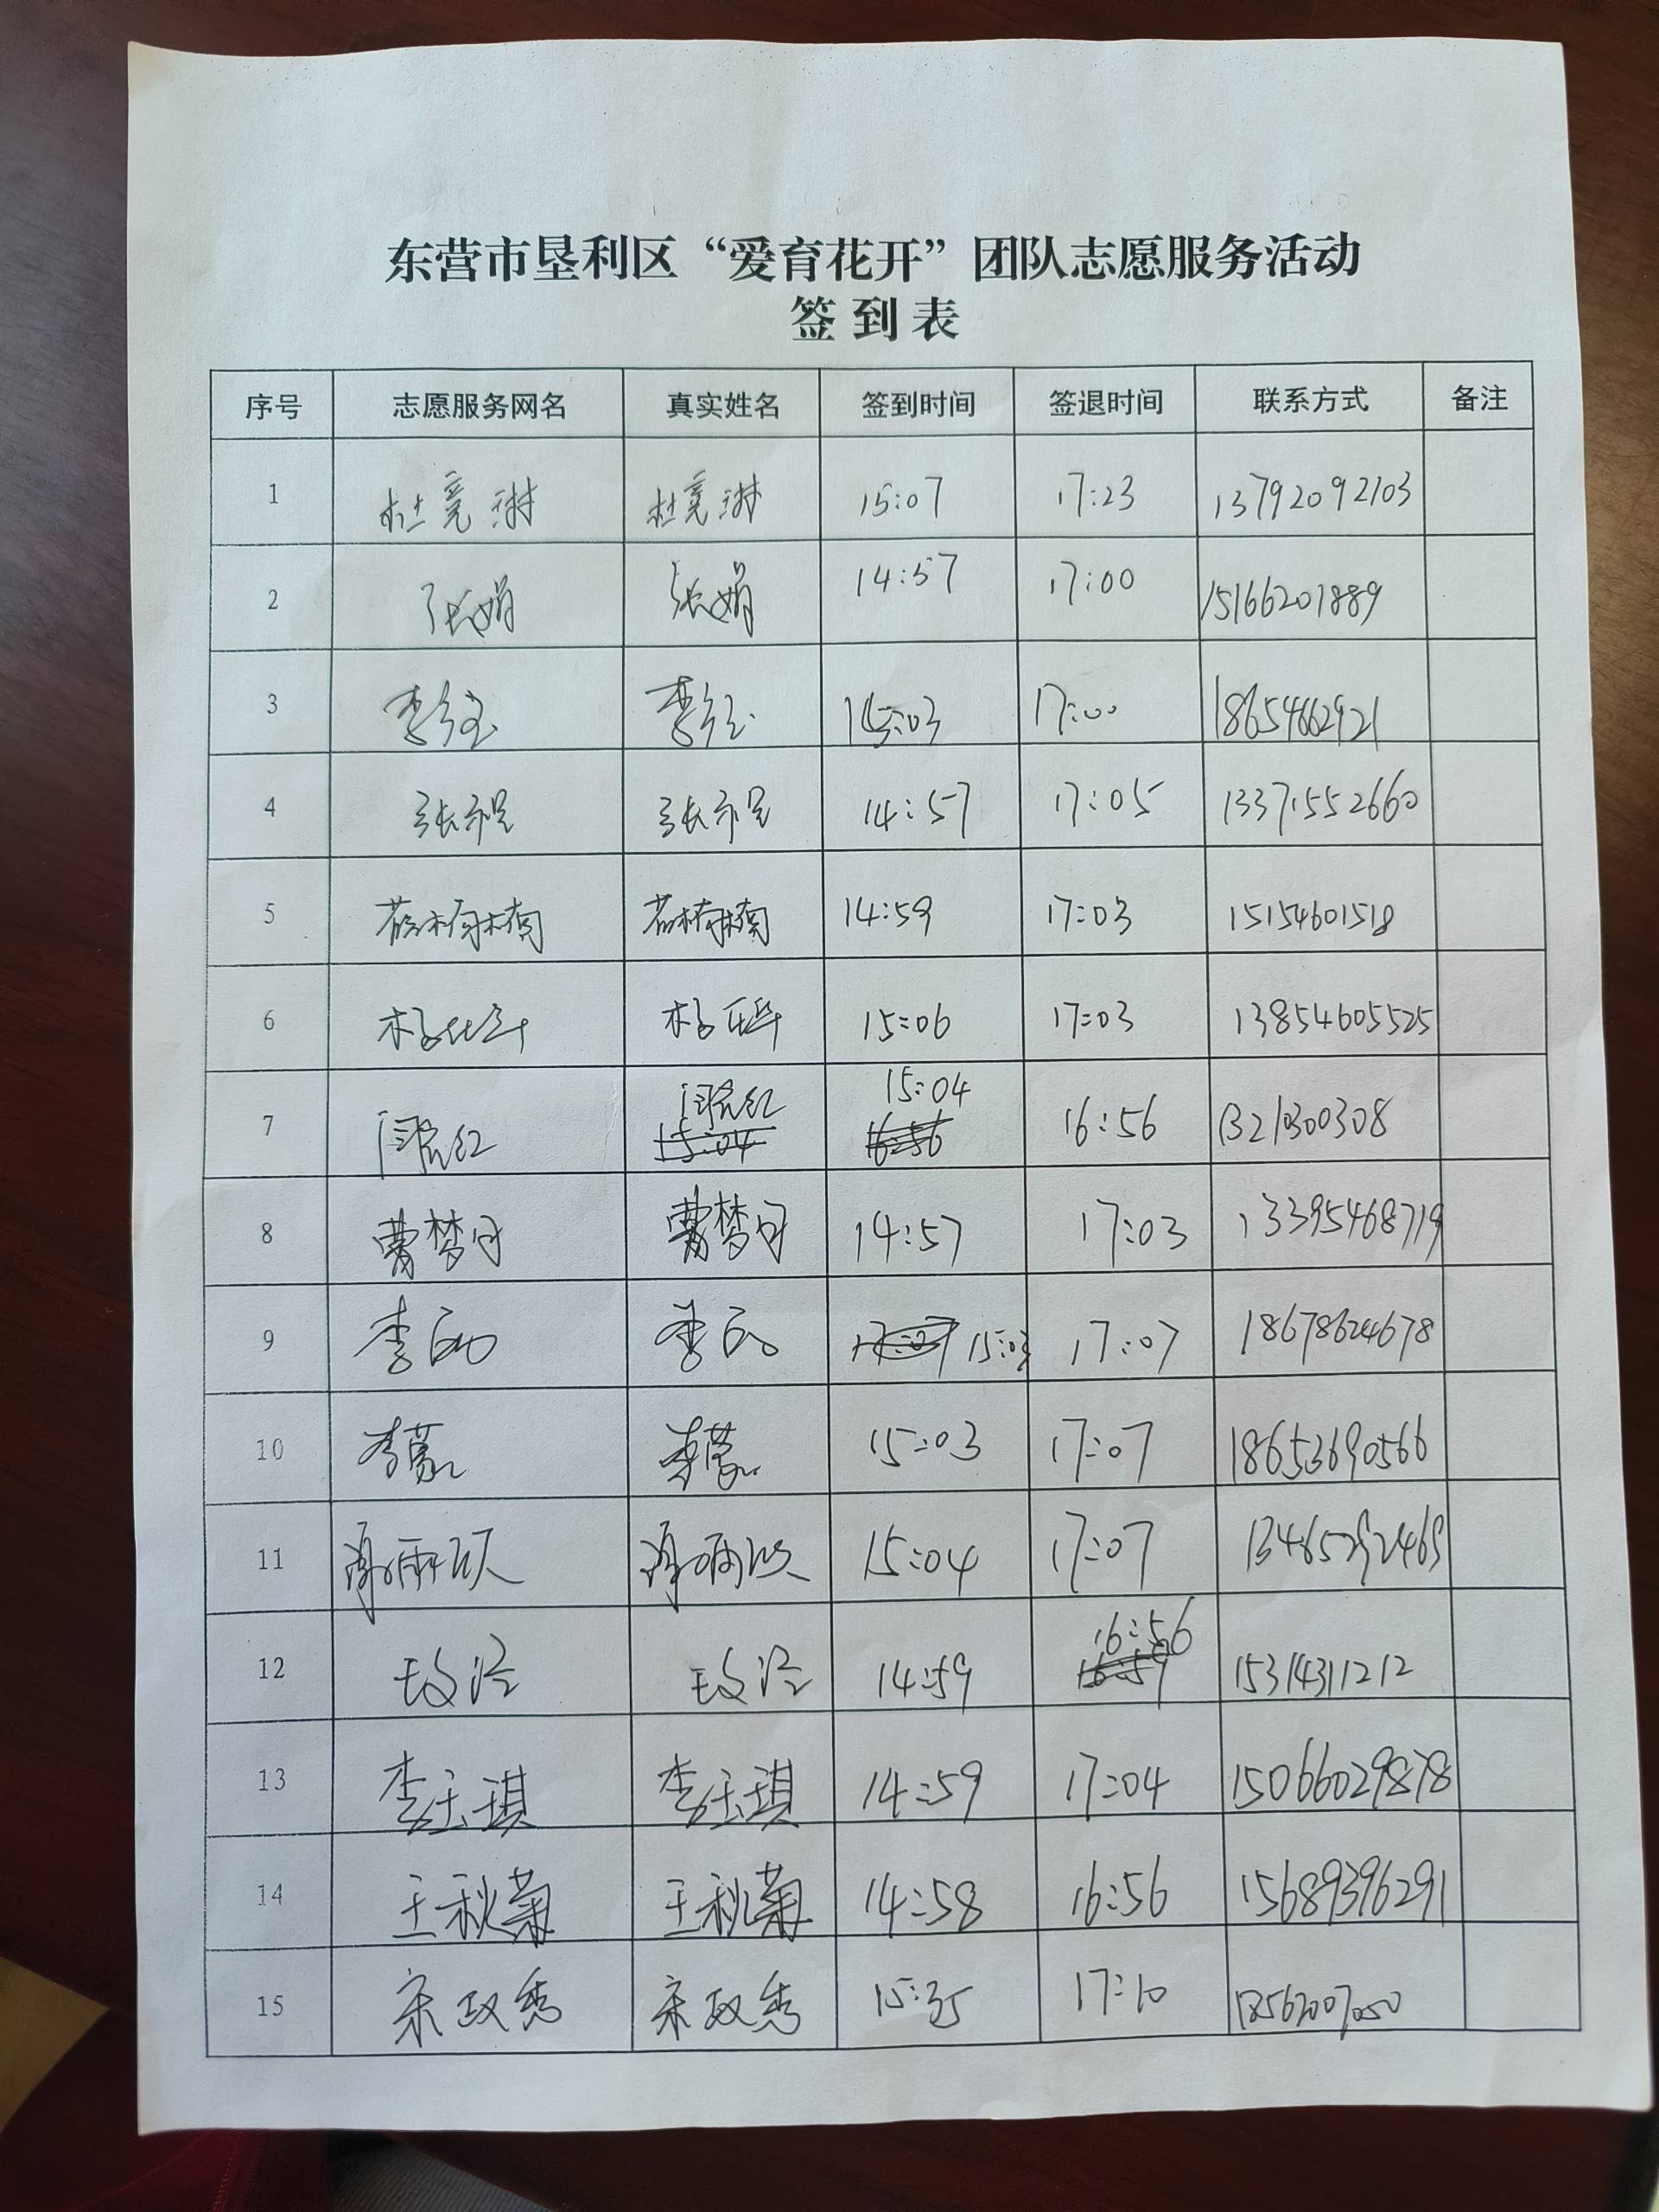 东营市垦利区“爱育花开”团队志愿服务活动
签到表
序号 志愿服务网名 真实姓名 签到时间 签退时间 联系方式 备注
1 杜竟琳 杜竟琳 15:07 17:23 13792092103
2 张娟 张娟 14:57 17:00 15166201889
3 李红 李红 15:03 17:00 18654662921
4 14:57 17:05 13371552660
5 14:59 17:03 15154601518
6 15:06 17:03 13854605525
7 15:04 16:56
8 曹梦月 曹梦月 14:57 17:03 13395468719
9 李 李 15:03 17:07 18678624678
10 李蒙 李蒙 15:03 17:07 18653690566
11 15:04 17:07 13465292469
12 14:59 16:56 15314311212
13 李玉琪 李玉琪 14:59 17:04 15066029878
14 王秋菊 王秋菊 14:58 16:56 15689396291
15 宋政秀 宋政秀 15:35 17:10